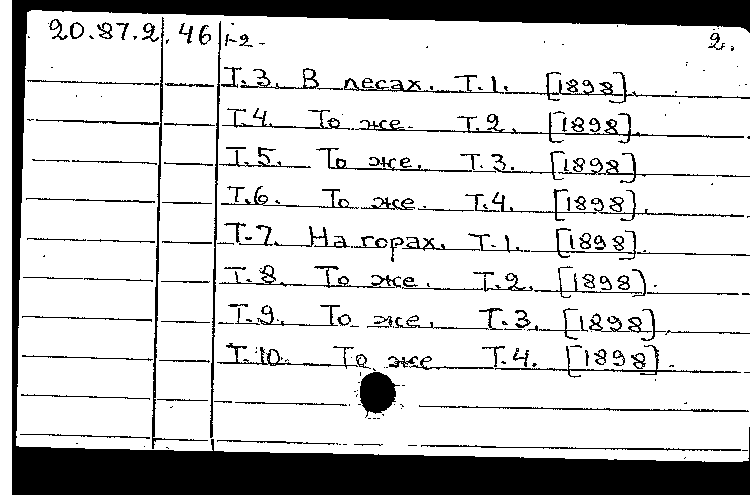 20.87.2.46 1-2. 2.
Т.3. В лесах. Т.1. [1898].
Т.4. То же. Т.2. [1898].
Т.5. То же. Т.3. [1898].
Т.6. То же. Т.4. [1898].
Т.7. На горах. Т.1. [1898].
Т.8. То же. Т.2. [1898].
Т.9. То же. Т.3. [1898].
Т.10. То же Т.4. [1898].